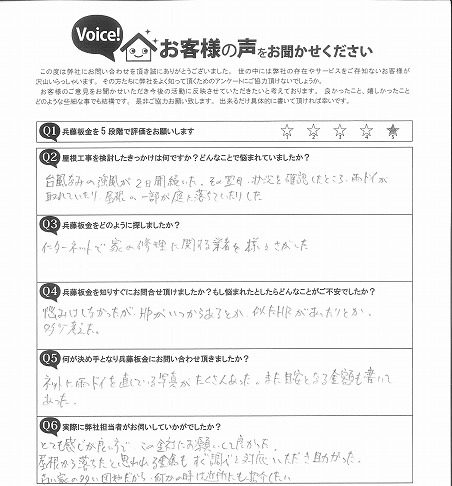 Voice!
お客様の声をお聞かせください
この度は弊社にお問い合わせを頂き誠にありがとうございました。 世の中には弊社の存在やサービスをご存知ないお客様が
沢山いらっしゃいます。 その方たちに弊社をよく知って頂くためのアンケートにご協力頂けないでしょうか。
お客様のご意見をお聞かせいただき今後の活動に反映させていただきたいと考えております。 良かったこと、嬉しかったこと
どのような些細な事でも結構です。 是非ご協力お願い致します。 出来るだけ具体的に書いて頂ければ幸いです。
Q1 兵藤板金を5段階で評価をお願いします 1 2 3 4 5
Q2 屋根工事を検討したきっかけは何ですか?どんなことで悩まれていましたか?
台風なみの強風が2日間続いた。その翌日、状況を確認したところ、雨ドイが
取れていたり 屋根の一部が庭に落ちてしたりした
Q3 兵藤板金をどのように探しましたか?
インターネットで家の修理に関する業者を様々さがした
Q4 兵藤板金を知りすぐにお問合せ頂けましたか?もし悩まれたとしたらどんなことがご不安でしたか?
悩みはしなかったが、HPがいつからあるとか 似たHPがあったりとか、
Q5 何が決め手となり兵藤板金にお問い合わせ頂きましたか?
ネットに雨ドイを直している写真がたくさんあった。また目安となる金額も書いて
あった。
Q6 実際に弊社担当者がお伺いしていかがでしたか?
とても感じが良い方で この会社にお願いして良かった。
屋根から落ちたと思われる も すぐ調べて対応いただき助かった。